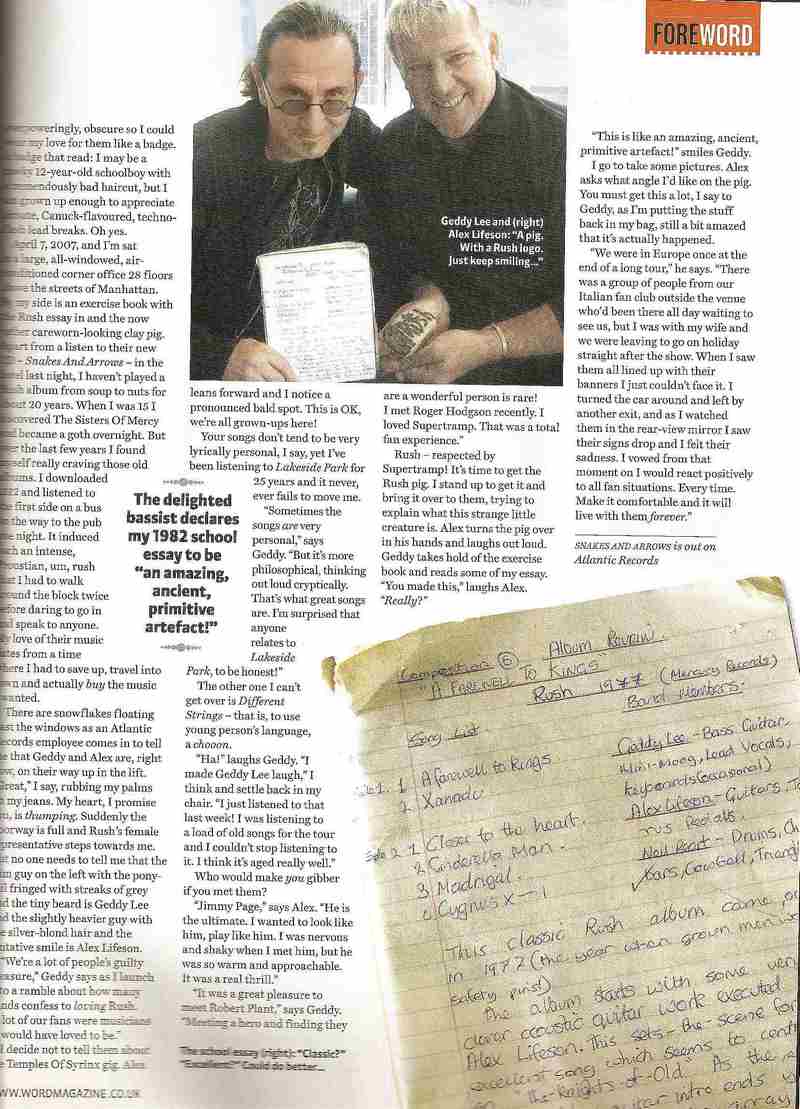 FOREWORD
poweringly, obscure so I could
my love for them like a badge.
that read: I may be a
12-year-old schoolboy with
bad haircut, but I
grown up enough to appreciate
Canuck-flavoured, techno-
lead breaks. Oh yes.
April 7, 2007, and I'm sat
large, all-windowed, air-
corner office 28 floors
the streets of Manhattan.
my side is an exercise book with
Rush essay in and the now
careworn-looking clay pig.
from a listen to their new
– Snakes And Arrows – in the
last night, I haven't played a
album from soup to nuts for
20 years. When I was 15 I
The Sisters Of Mercy
became a goth overnight. But
the last few years I found
really craving those old
I downloaded
and listened to
first side on a bus
the way to the pub
night. It induced
an intense,
um, rush
I had to walk
the block twice
before daring to go in
speak to anyone.
love of their music
from a time
I had to save up, travel into
and actually buy the music
wanted.
There are snowflakes floating
the windows as an Atlantic
employee comes in to tell
that Geddy and Alex are, right
on their way up in the lift.
I say, rubbing my palms
my jeans. My heart, I promise
is thumping. Suddenly the
is full and Rush's female
steps towards me.
no one needs to tell me that the
guy on the left with the pony-
fringed with streaks of grey
the tiny beard is Geddy Lee
the slightly heavier guy with
silver-blond hair and the
smile is Alex Lifeson.
"We're a lot of people's guilty
Geddy says as I launch
to a ramble about how many
confess to loving Rush.
lot of our fans were musicians
would have loved to be."
decide not to tell them about
Temples Of Syrinx gig. Alex
WWW.WORDMAGAZINE.CO.UK
Geddy Lee and (right)
Alex Lifeson: "A pig.
With a Rush logo.
Just keep smiling..."
leans forward and I notice a
pronounced bald spot. This is OK,
we're all grown-ups here!
Your songs don't tend to be very
lyrically personal, I say, yet I've
been listening to Lakeside Park for
25 years and it never,
ever fails to move me.
"Sometimes the
songs are very
personal," says
Geddy. "But it's more
philosophical, thinking
out loud cryptically.
That's what great songs
are. I'm surprised that
anyone
relates to
Lakeside
Park, to be honest!"
The other one I can't
get over is Different
Strings – that is, to use
young person's language,
a chooon.
"Ha!" laughs Geddy. "I
made Geddy Lee laugh," I
think and settle back in my
chair. "I just listened to that
last week! I was listening to
a load of old songs for the tour
and I couldn't stop listening to
it. I think it's aged really well."
Who would make you gibber
if you met them?
"Jimmy Page," says Alex. "He is
the ultimate. I wanted to look like
him, play like him. I was nervous
and shaky when I met him, but he
was so warm and approachable.
It was a real thrill."
"It was a great pleasure to
meet Robert Plant," says Geddy.
"Meeting a hero and finding they
The delighted
bassist declares
my 1982 school
essay to be
"an amazing,
ancient,
primitive
artefact!"
The school essay (right): "Classic?"
"Excellent?" Could do better...
are a wonderful person is rare!
I met Roger Hodgson recently. I
loved Supertramp. That was a total
fan experience."
Rush – respected by
Supertramp! It's time to get the
Rush pig. I stand up to get it and
bring it over to them, trying to
explain what this strange little
creature is. Alex turns the pig over
in his hands and laughs out loud.
Geddy takes hold of the exercise
book and reads some of my essay.
"You made this," laughs Alex.
"Really?"
"This is like an amazing, ancient,
primitive artefact!" smiles Geddy.
I go to take some pictures. Alex
asks what angle I'd like on the pig.
You must get this a lot, I say to
Geddy, as I'm putting the stuff
back in my bag, still a bit amazed
that it's actually happened.
"We were in Europe once at the
end of a long tour," he says. "There
was a group of people from our
Italian fan club outside the venue
who'd been there all day waiting to
see us, but I was with my wife and
we were leaving to go on holiday
straight after the show. When I saw
them all lined up with their
banners I just couldn't face it. I
turned the car around and left by
another exit, and as I watched
them in the rear-view mirror I saw
their signs drop and I felt their
sadness. I vowed from that
moment on I would react positively
to all fan situations. Every time.
Make it comfortable and it will
live with them forever."
SNAKES AND ARROWS is out on
Atlantic Records
Composition 6 Album Review
"A FAREWELL TO KINGS
Rush 1977 (Mercury Records)
Band Members.
Song List
Side 1. 1 A farewell to Kings
2. Xanadu
Side 2 1 Closer to the heart.
2 Cinderella Man.
3 Madrigal.
Cygnus X-1
Geddy Lee - Bass Guitar
Mini-Moog, Lead Vocals,
Keyboards (occasional)
Alex Lifeson - Guitars,
Pedals.
Neil Peart - Drums,
bars, Cow Bell,
This classic Rush album came
in 1977 (the year when grown men
safety pins!)
The album starts with some
clever acoustic guitar work executed
Alex Lifeson. This sets the scene for
excellent song which seems to
"the Knights-of-Old. As the
guitar intro ends
array